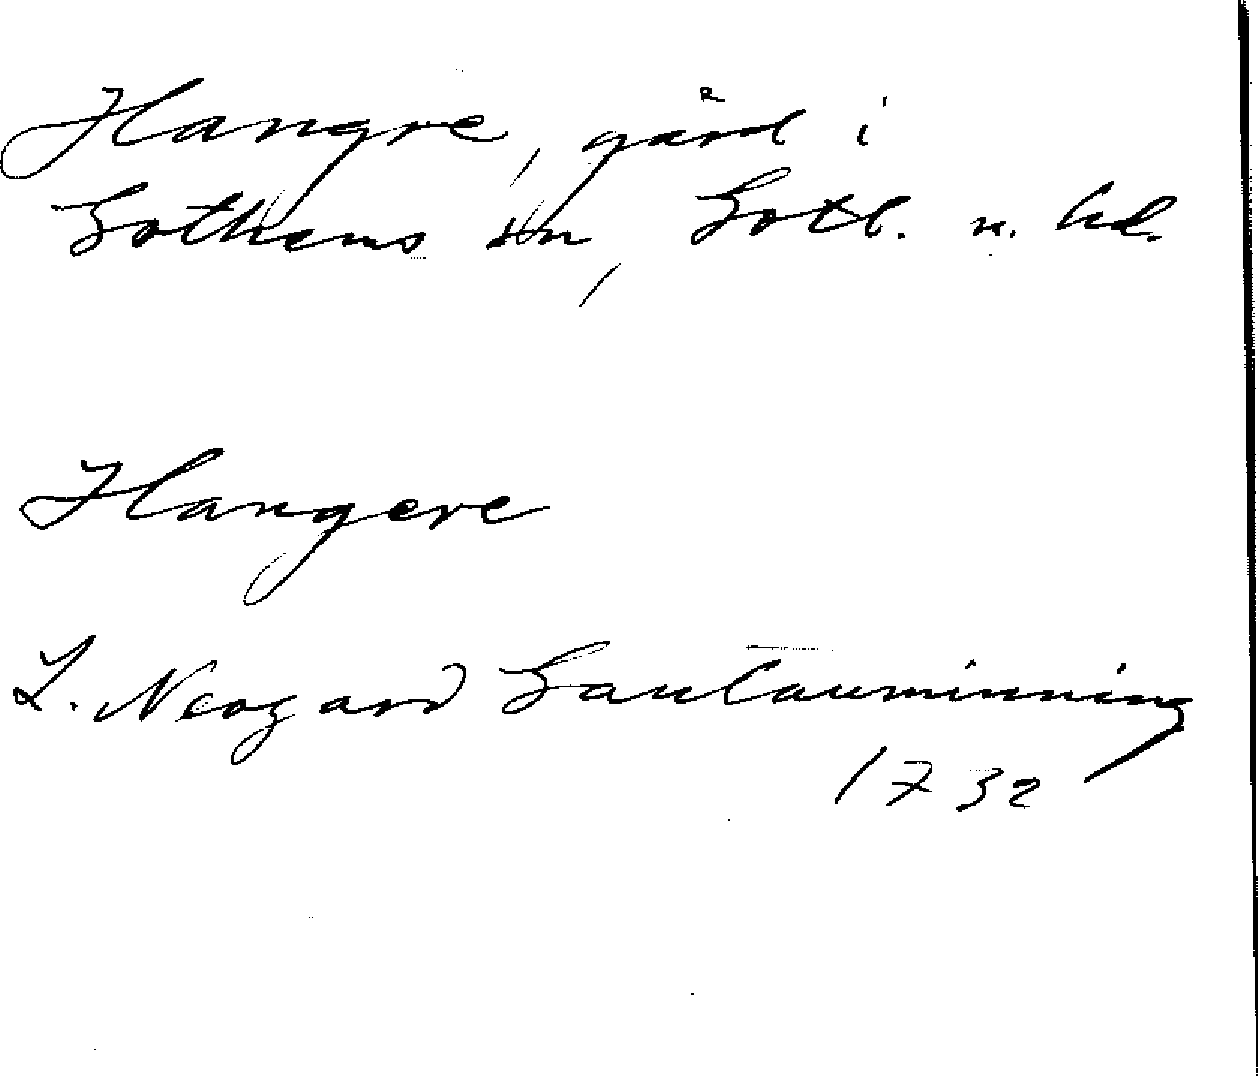 Hangre, gård i
Gothems sn, Gotl. n. hd.
Hangere
L. Neogard Gautauminning
1732